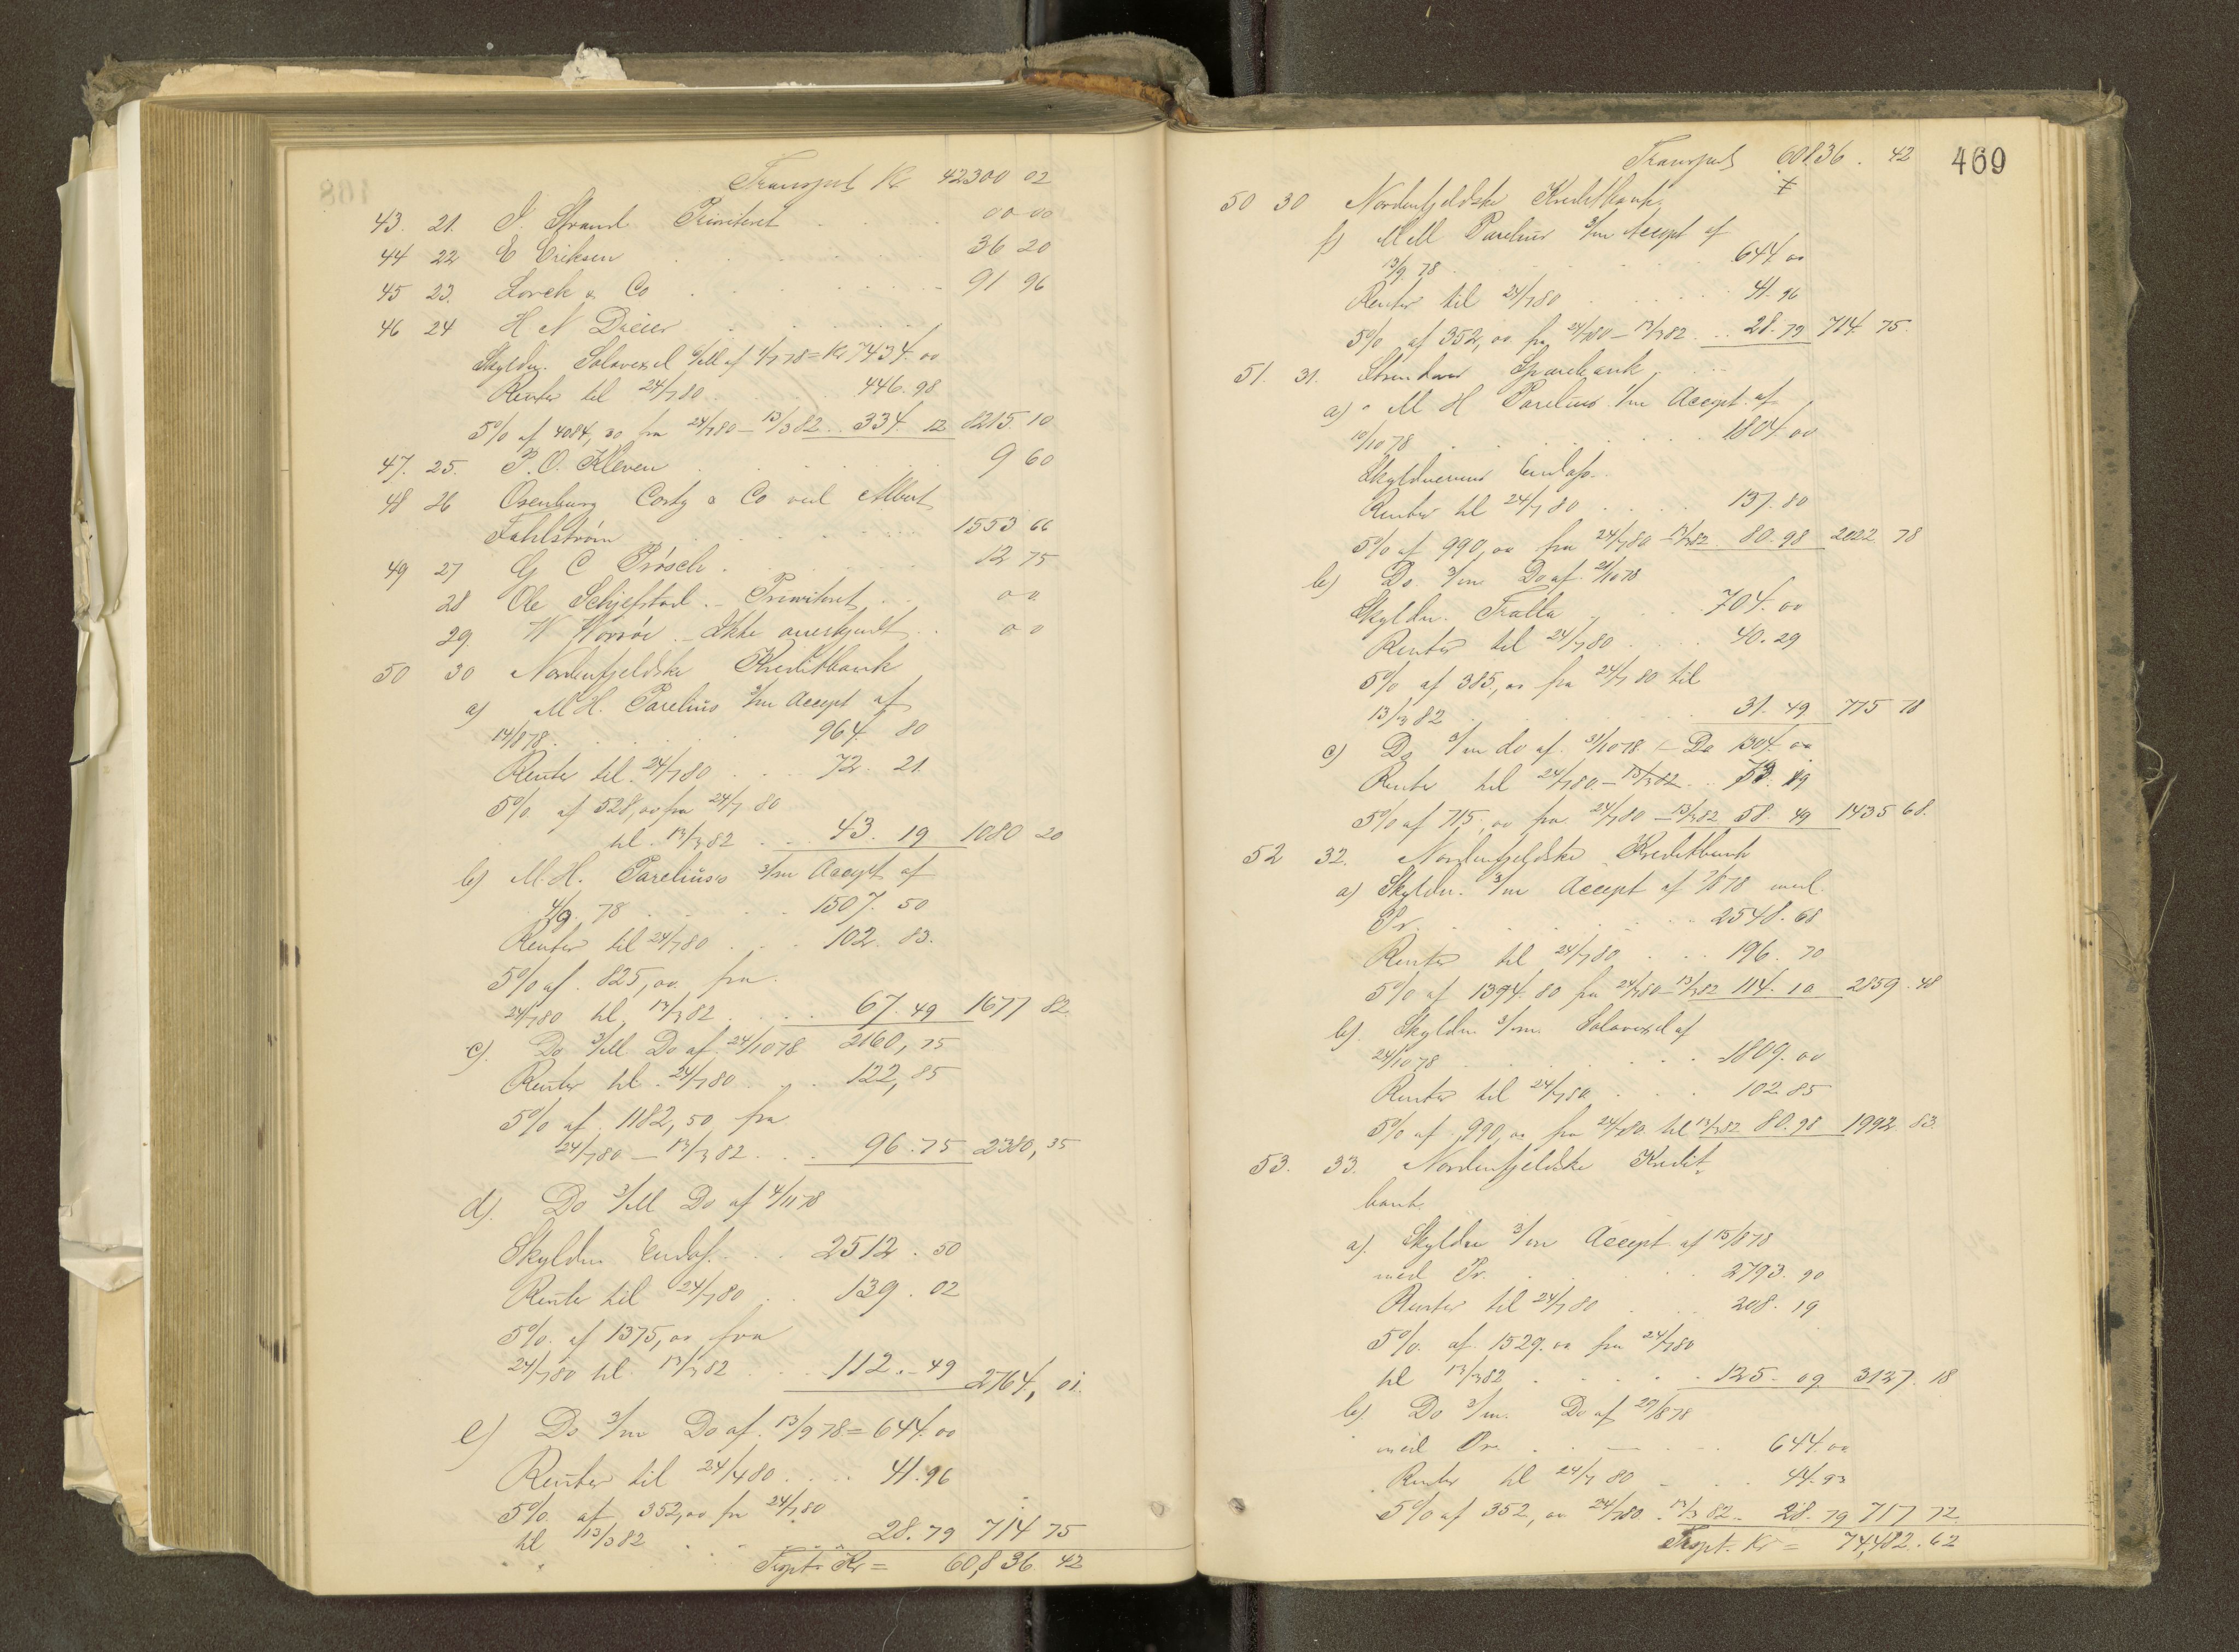 Transport Kr 42300 02
43. 21. J. Strand Prioriteret . . . 00 00
44 22 E Eriksen . . . 36 20
45 23. Lorck & Co . . . 91 96
46 24 H N Dreier . . .
Skyldn. Solavexel 6/M af 1/7 78 = Kr 7434. 00
Renter til 24/7 80 . . 446. 98
5% af 4084, 30 fra 24/7 80 – 13/3 82 . . 334. 12 8215. 10
47. 25. P. O. Kleven . . . 9 60
48 26 Osenburg Costy & Co ved Albert
Fahlström . . . 1553 66
49 27 G C Prösch . . . 12 75
28 Ole Schjefstad. – Prioriteret . . 00
29. W – Ikke anerkjendt . . 00
50 30 Nordenfjeldske Kreditbank
a) M. H. Parelius 3/m Accept af
14/8 78 . . . 964. 80
Renter til 24/7 80 . . . 72. 21
5% af 528, 00 fra 24/7 80
til 13/3 82 . . . 43. 19 1080 20
b) M. H. Parelius's 3/m Accept af
4/9. 78 . . . 1507. 50
Renter til 24/7 80 . . . 102. 83.
5% af 825, 00 fra
24/7 80 til 13/3 82 . . . 67. 49 1677 82
c). Do 3/M Do af 24/10 78 2160, 75
Renter til 24/7 80 . . . 122, 85
5% af 1182, 50 fra
24/7 80 – 13/3 82 . . . 96. 75 2380, 35
d). Do 3/M Do af 4/11 78
Skyldn. Endos. . . 2512. 50
Rente til 24/7 80 . . 139. 02
5% af 1375, 00 fra
24/7 80 til 13/3 82 . . . 112. – 49 2764, 01.
e) Do 3/m Do af 13/9 78 = 644. 00
Renter til 24/7 80 . . . 41. 96
5% af 352, 00 fra 24/7 80
til 13/3 82 . . . 28. 79 714 75
Trspt. Kr = 60,836. 42
469
Transport 60836. 42
50 30 Nordenfjeldske Kreditbank
f) M. H. Parelius 3/m Accept af
13/9. 78 . . . 644. 00
Renter til 24/7 80 . . . 41. 96
5% af 352, 00 fra 24/7 80 – 13/3 82 . . 28. 79 714. 75.
51. 31. Sparebank . . .
a) M H Parelius 3/m Accept af
10/10 78 . . . 1804. 00
Skyldnerens Endoss.
Renter til 24/7 80 . . . 137. 80
5% af 990, 00 fra 24/7 80 – 13/3 82 80. 98 2022 78
b) Do. 3/m Do af 21/10 78
Skyldn. Tratta . . . 704. 00
Renter til 24/7 80 . . . 40. 29
5% af 385, 00 fra 24/7 80 til
13/3 82 . . . 31. 49 775 78
c) Do 3/m do af 31/10 78 – Do 1304. 00
Renter til 24/7 80 – 13/3 82 . . 73. 19
5% af 715, 00 fra 24/7 80 – 13/3 82 58. 49 1435 68.
52 32. Nordenfjeldske Kreditbank
a) Skyldn. 3/m Accept af 7/8 78 med
Pr. . . . 2548. 68
Renter til 24/7 80 . . . 196. 70
5% af 1394. 80 fra 24/7 80 – 13/3 82 114. 10 2859. 48
b). Skyldn 3/m. Solavexel af
24/10 78 . . . 1809. 00
Renter til 24/7 80 . . . 102 85
5% af 990, 00 fra 24/7 80. til 13/3 82 80. 98 1992 83
53. 33. Nordenfjeldske Kredit
bank
a). Skyldn 3/m Accept af 15/8 78
med Pr. . . . 2793. 90
Renter til 24/7 80 . . . 208. 19
5% af 1529. 00 fra 24/7 80
til 13/3 82 . . . 125. 09 3127. 18
b). Do 3/m. Do af 27/8 78
med Pr. . . . 644. 00
Renter til 24/7 80 . . . 44. 93
5% af 352, 00 24/7 80 . 13/3 82 . . 28. 79 717 72.
Trspt. Kr = 74,482. 62